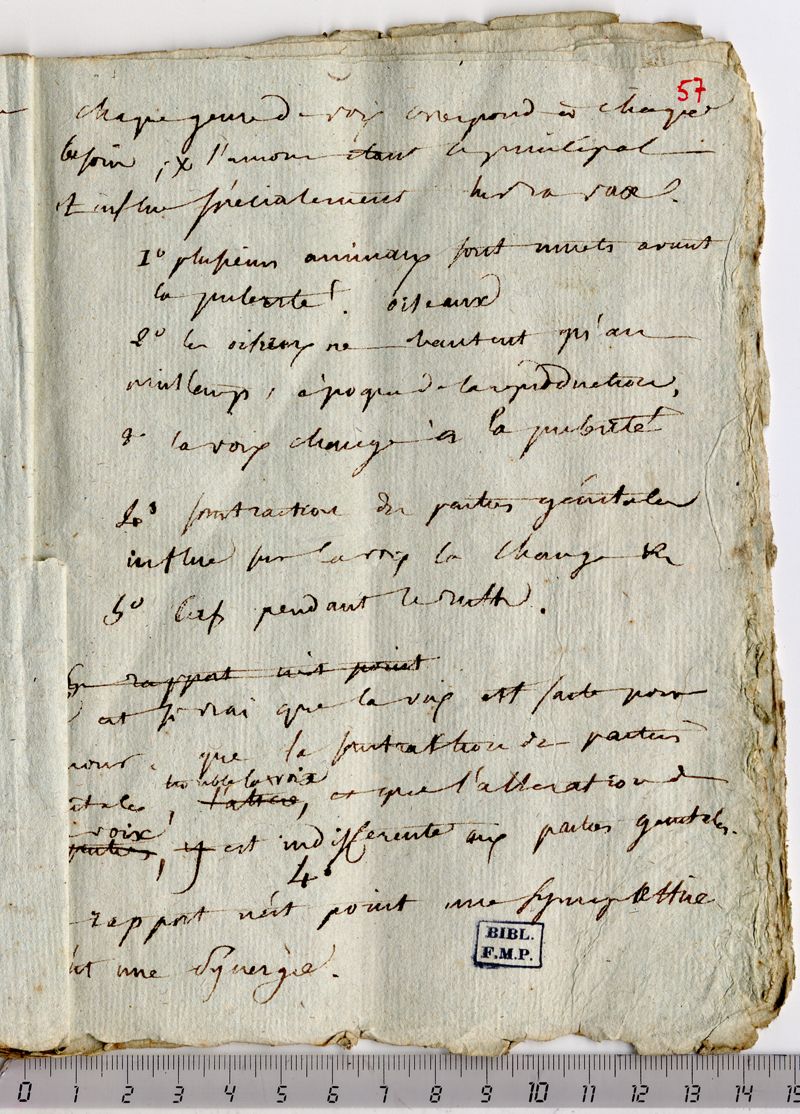 57
chaque genre de voix correspond à chaque
besoin , x l'amour étant le principal
et influe spécialement sur la voix.
1° plusieurs animaux sont muets avant
la puberté. oiseaux
2° les oiseaux ne chantent qu'au
printemps, époque de la reproduction,
3° la voix change à la puberté
4° soustraction des parties génitales
influe sur la voix la change &c
5° cerf pendant le ruth.
Ce rapport n'est point
est si vrai que la voix est faite pour
que la soustraction des parties
trouble la voix
l'altère, et que l'altération de
voix
parties, y est indifférente aux parties génitales.
4°
rapport n'est point une sympathie
une synergie.
BIBL.
F.M.P.
0 1 2 3 4 5 6 7 8 9 10 11 12 13 14 15